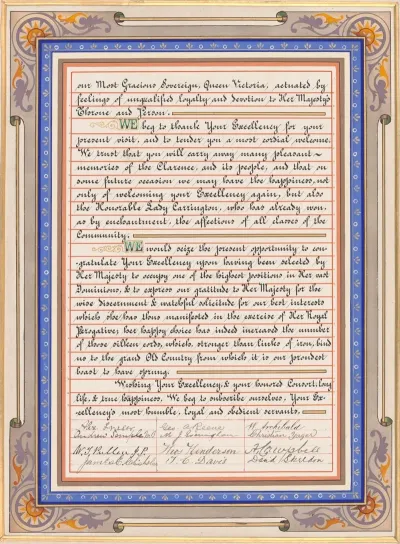 our Most Gracious Sovereign, Queen Victoria, actuated by
feelings of unqualified loyalty and devotion to Her Majesty's
Throne and Person.
WE beg to thank Your Excellency for your
present visit, and to tender you a most cordial welcome.
We trust that you will carry away many pleasant
memories of the Clarence, and its people, and that on
some future occasion we may have the happiness, not
only of welcoming your Excellency again, but also
the Honorable Lady Carrington, who has already won,
as by enchantment, the affections of all classes of the
Community.
WE would seize the present opportunity to con-
gratulate Your Excellency upon having been selected by
Her Majesty to occupy one of the highest positions in Her vast
Dominions, & to express our gratitude to Her Majesty for the
wise discernment & watchful solicitude for our best interests
which she has thus manifested in the exercise of Her Royal
Perogative; her happy choice has indeed increased the number
of those silken cords, which, stronger than links of iron, bind
us to the grand Old Country from which it is our proudest
boast to have sprung.
Wishing Your Excellency, & your honored Consort, long
life, & true happiness, We beg to subscribe ourselves, Your Ex-
cellency's most humble, loyal and obedient servants.
Geo
W.
J.P.
Henderson
A Campbell
T. C. Davis